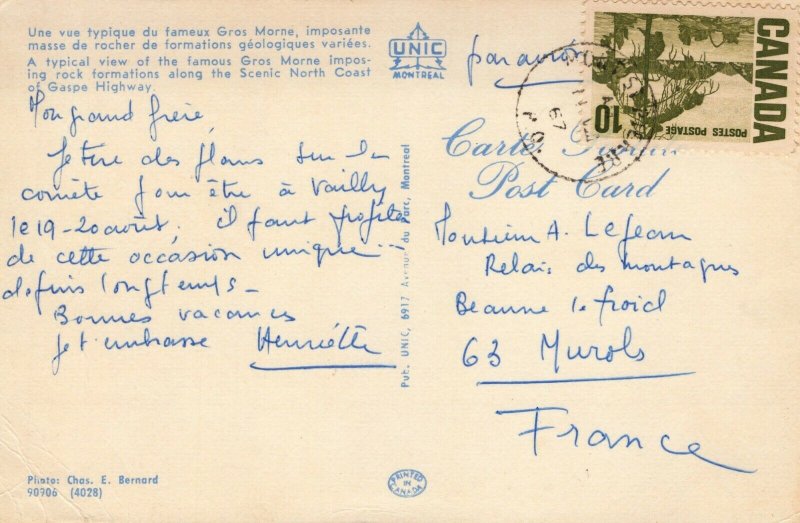 Une vue typique du fameux Gros Morne, imposante
masse de rocher de formations géologiques variées.
A typical view of the famous Gros Morne impos-
ing rock formations along the Scenic North Coast
of Gaspe Highway.
UNIC
MONTREAL
par avion
CANADA
10
POSTES POSTAGE
67
P.Q.
Carte
Post Card
Mon grand frère,
Je tire des plans sur la
comète pour être à Vailly
le 19-20 août. il faut profiter
de cette occasion unique
depuis longtemps -
Bonnes vacances
Je t'embrasse Henriette
Pub. UNIC, 6917 Avenue du Parc, Montreal
Monsieur A. Lejean
Relais des montagnes
Beaune le froid
63 Murols
France
Photo: Chas. E. Bernard
90906 (4028)
PRINTED
IN
CANADA